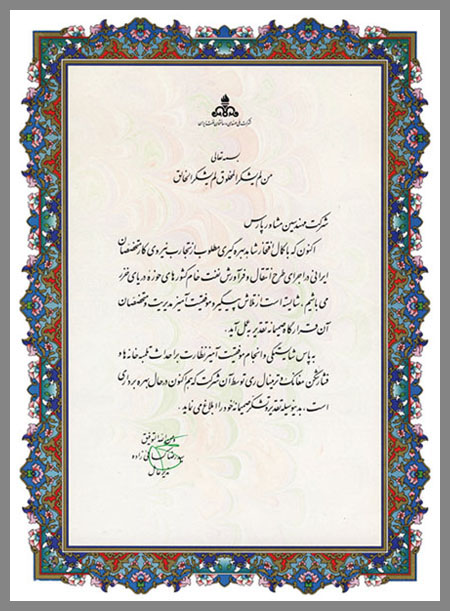 شرکت ملی مهندسی و ساختمان نفت ایران
بسمه تعالی
من لم یشکر المخلوق لم یشکر الخالق
شرکت مهندسین مشاور پارس
اکنون که با کمال افتخار شاهد بهره گیری مطلوب از تجارب نیروی کار متخصصان
ایرانی در اجرای طرح انتقال و فرآورش نفت خام کشورهای حوزه دریای خزر
می باشیم، شایسته است از تلاش پیگیر و موفقیت آمیز مدیریت و متخصصان
آن قرارگاه صمیمانه تقدیر به عمل آید.
به پاس شایستگی و انجام موفقیت آمیز نظارت بر احداث تلمبه خانه ها و
فشارشکن معانک و ترمینال ری توسط آن شرکت که هم اکنون در حال بهره برداری
است، بدینوسیله تقدیر و تشکر صمیمانه خود را ابلاغ می نماید.
و من الله التوفیق
سیدرضا زاده
مدیرعامل